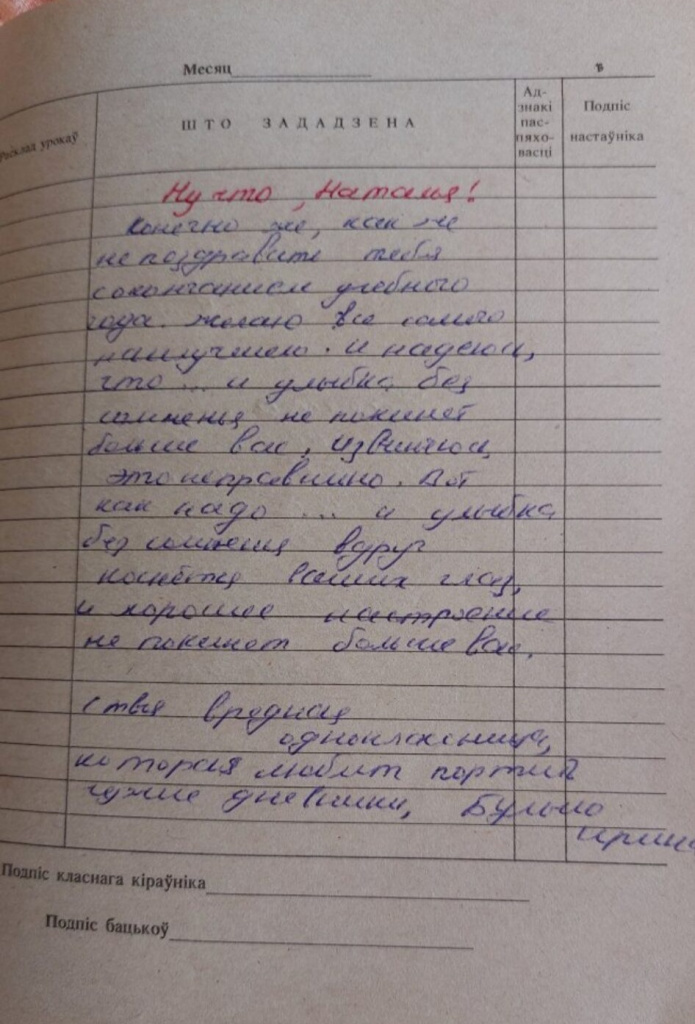 Месяц
Расклад урокаў
ШТО ЗАДАДЗЕНА
Ад-
знакі
пас-
пяхо-
васці
Подпіс
настаўніка
Ну что, Наталья!
Конечно же, как же
не поздравить тебя
с окончанием учебного
года. Желаю все самого
наилучшего. И надеюсь,
что ... и улыбка, без
сомненья не покинет
больше вас, извиняюсь,
это неправильно. Вот
как надо ... и улыбка
без сомненья вдруг
коснётся ваших глаз,
и хорошее настроение
не покинет больше вас.
твоя вредная
одноклассница,
которая любит портить
чужие дневники,
Ирина
Подпіс класнага кіраўніка
Подпіс бацькоў